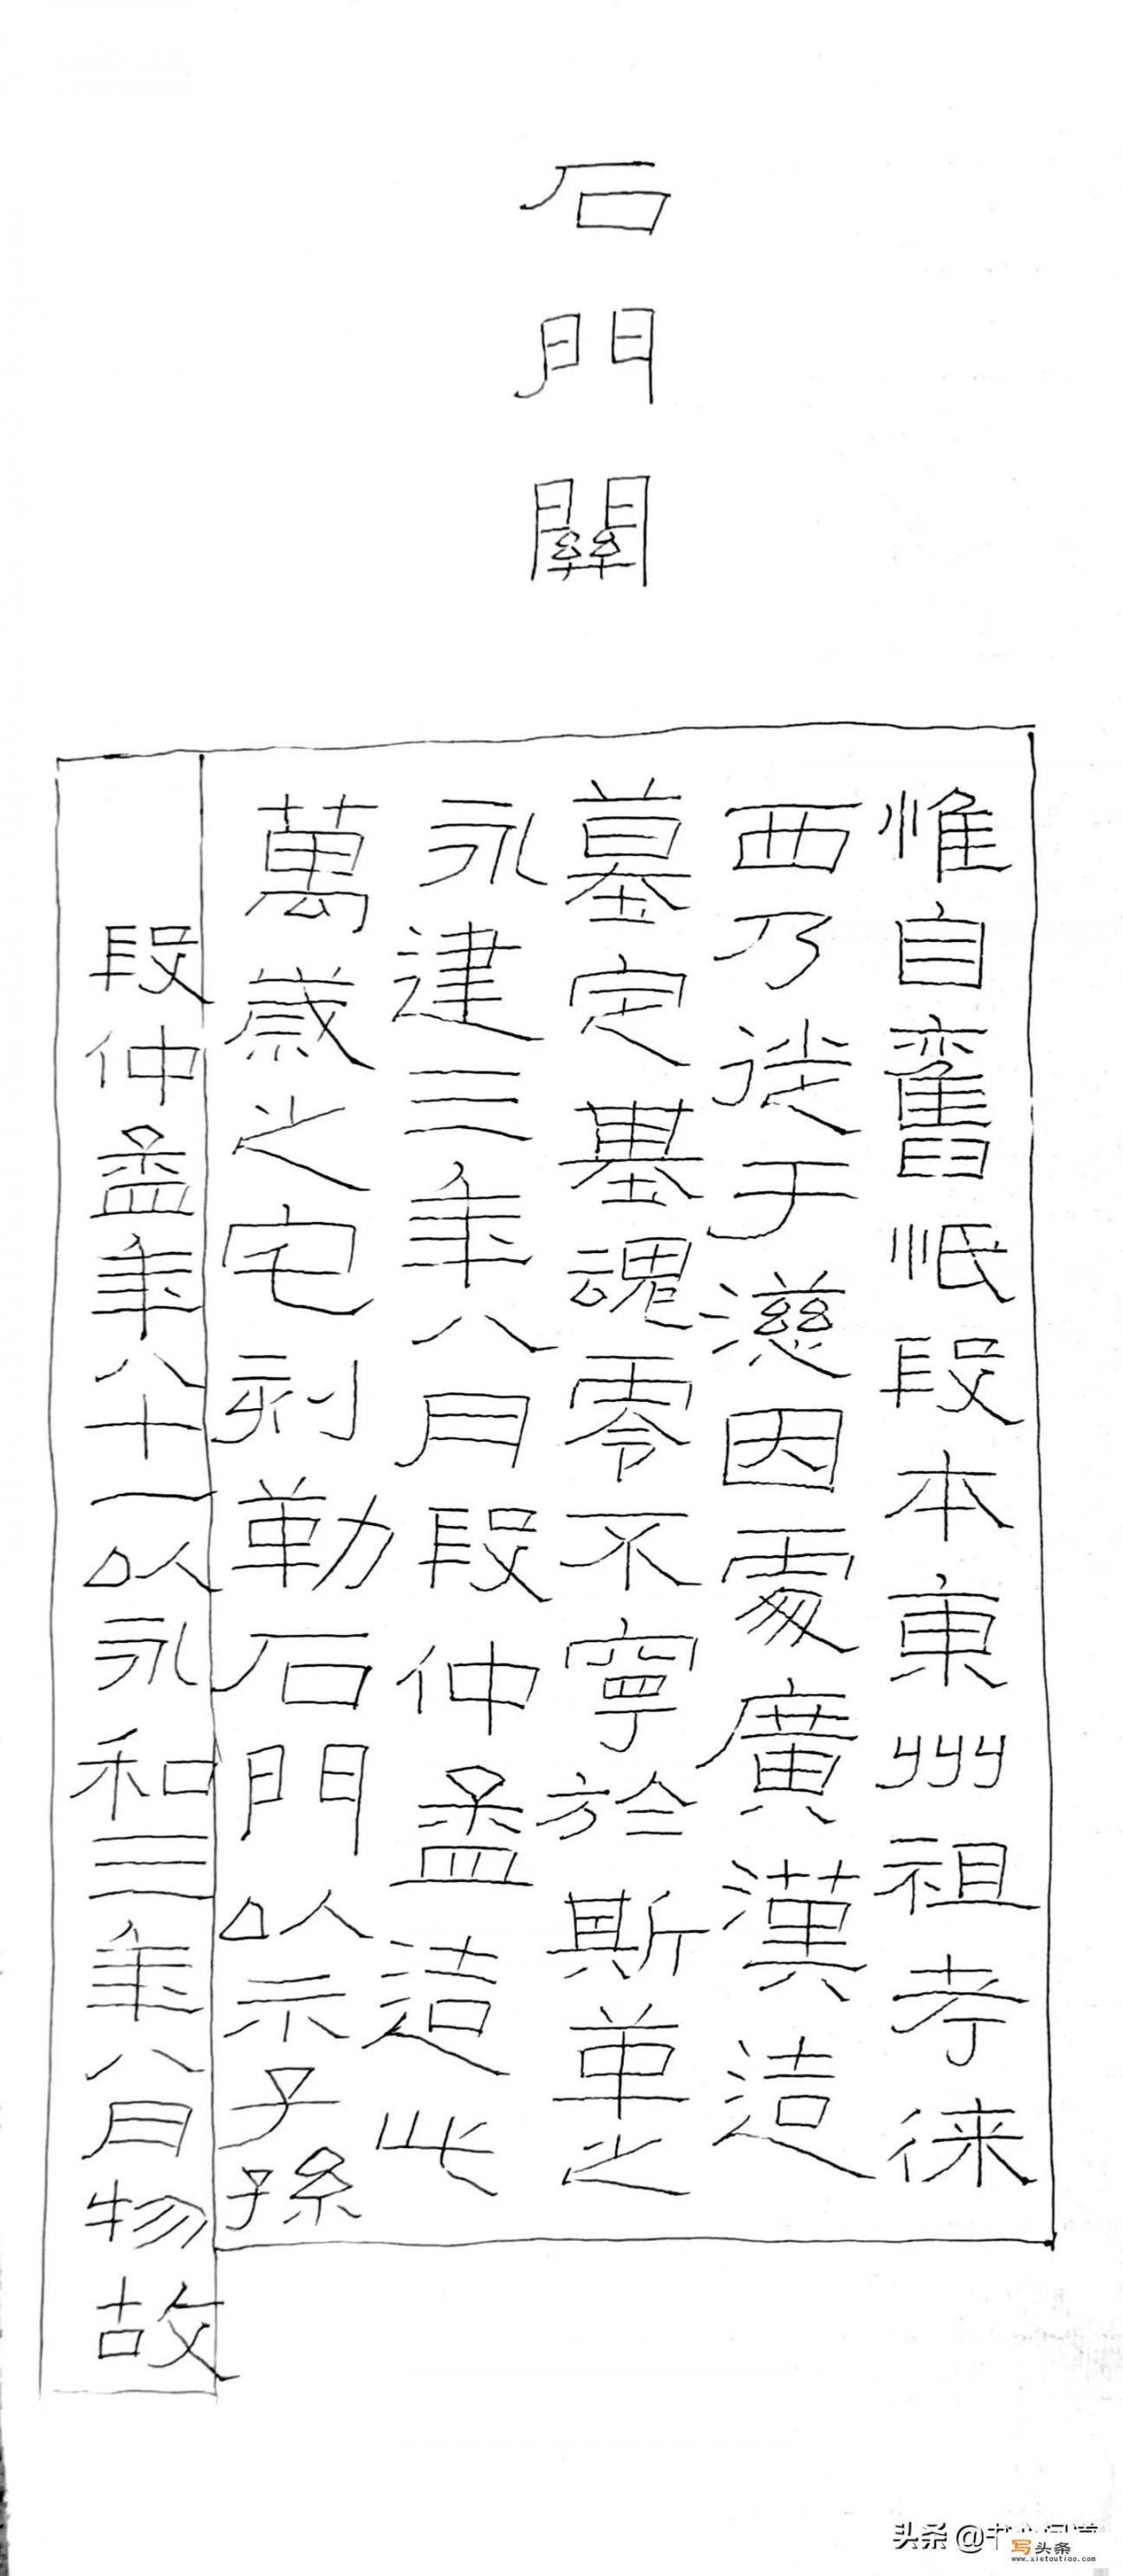 石門關
惟自舊㤝段本東州祖考徠
西乃徙于慈因處廣漢造
墓定墓魂零不寧於斯革之
永建三年八月段仲孟造此
萬歲之宅刻勒石門以示子孫
段仲孟年八十一以永和三年八月物故
头条 @
写头条
www.xietoutiao.com